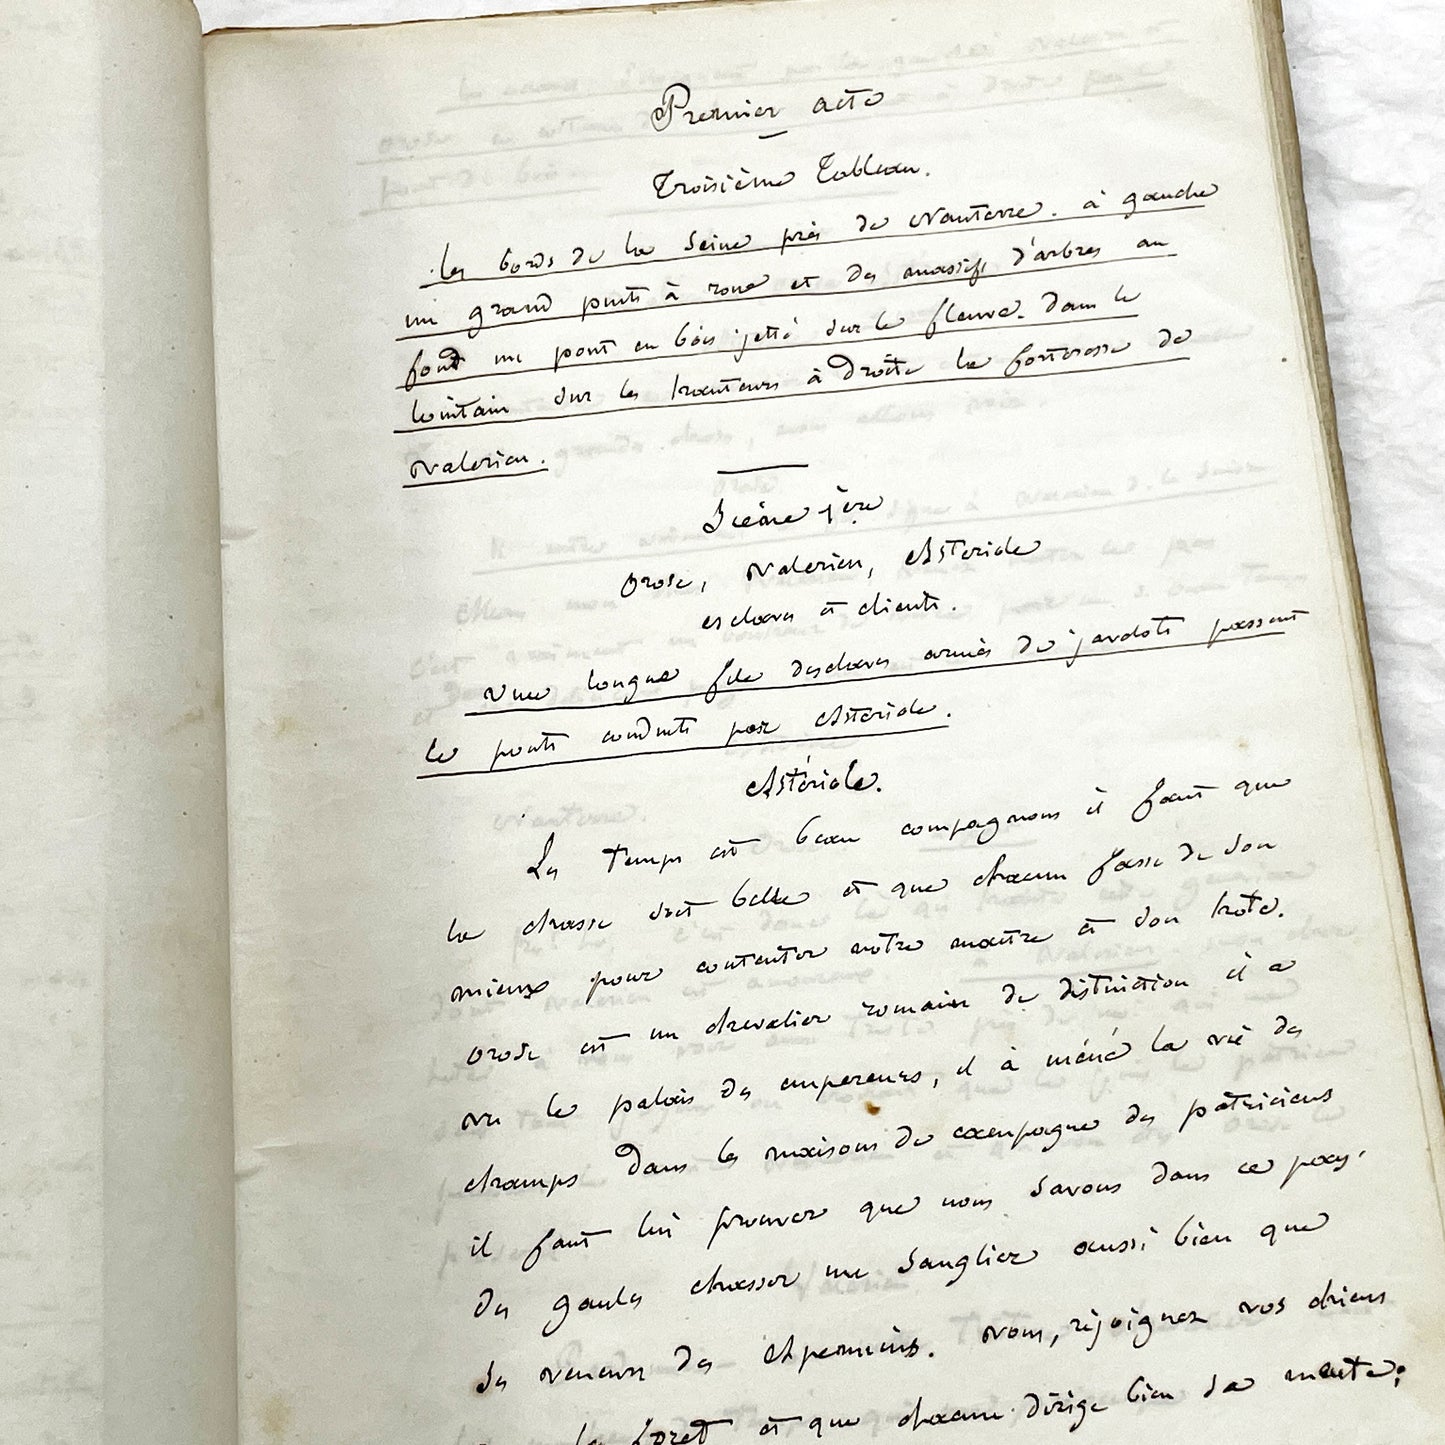 Premier acte
Troisième Tableau.
les bords de la Seine près de Nanterre. à gauche
un grand puits à roue et des massifs d'arbres au
fond un pont en bois jetté sur le fleuve. Dans le
lointain sur les hauteurs à droite la forteresse de
Valerien.
Scène 1ère
Orose, Valerien, Astériole
esclaves et clients.
Une longue file desclaves armés de javelots passent
le ponts conduits par Astériole.
Astériole.
Le Temps est beau compagnons il faut que
la chasse soit belle et que chacun fasse de son
mieux pour contenter notre maitre et son hote.
Orose est un chevalier romain de distinction il a
vu le palais des empereurs, il à méné la vie des
champs dans les maisons de campagne des patriciens
il faut lui prouver que nous savons dans ce pays.
des gaules chasser un sanglier aussi bien que
les veneurs des Apennins. Vous, rejoignez vos chiens
la foret et que chacun dirige bien sa meute;